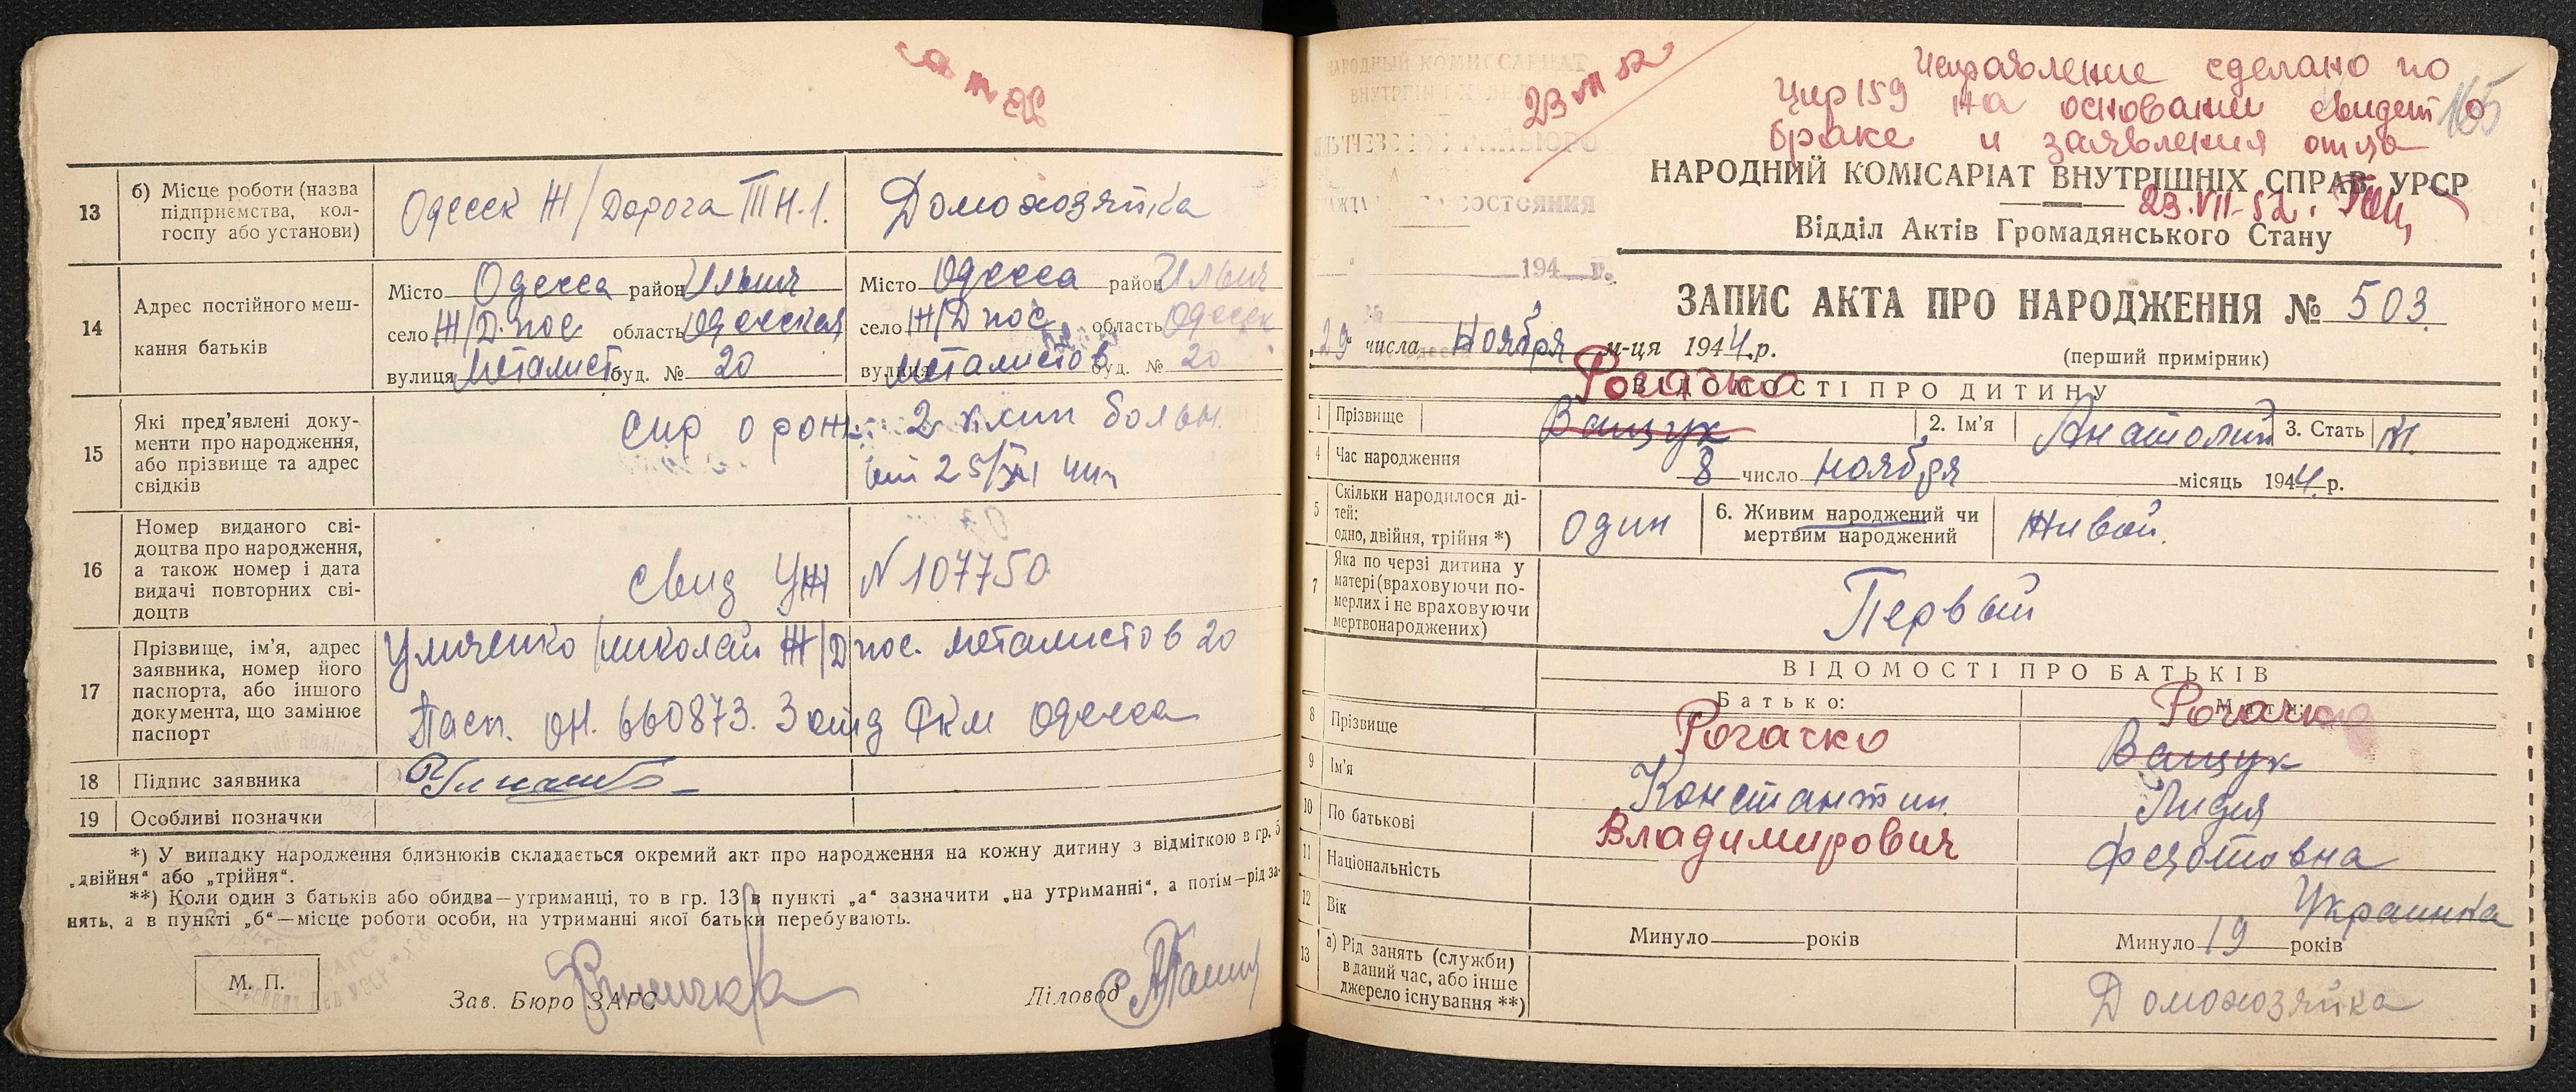 13
б) Місце роботи (назва
підприємства, кол-
госпу або установи)
Одесск Ж/Дорога ТН-1.
Домохозяйка
14
Адрес постійного меш-
кання батьків
Місто Одесса район Ильич
село Ж/Д. пос область Одесская
вулиця Металист буд. № 20
Місто Одесса район Ильич
село Ж/Д пос область Одесск
вулиця Металистов буд. № 20
15
Які пред'явлені доку-
менти про народження,
або прізвище та адрес
свідків
спр о рож. 2 клин больн.
от 25/XI 44г
16
Номер виданого сві-
доцтва про народження,
а також номер і дата
видачі повторних сві-
доцтв
свид УЖ N 107750
17
Прізвище, ім'я, адрес
заявника, номер його
паспорта, або іншого
документа, що замінює
паспорт
Николай Ж/Д пос. Металистов 20
Пасп. ОН. 660873. 3 отд РКМ Одесса
18
Підпис заявника
19
Особливі позначки
*) У випадку народження близнюків складається окремий акт про народження на кожну дитину з відміткою в гр. 5
„двійня“ або „трійня“.
**) Коли один з батьків або обидва—утриманці, то в гр. 13 в пункті „а“ зазначити „на утриманні“, а потім—рід за-
нять, а в пункті „б“—місце роботи особи, на утриманні якої батьки перебувають.
М. П.
Зав. Бюро ЗАГС
Діловод
23 VII 52
Исправление сделано по
цир 159 на основании свидет о
браке и заявления отца
165
23.VII-52.
НАРОДНИЙ КОМІСАРІАТ ВНУТРІШНІХ СПРАВ УРСР
Відділ Актів Громадянського Стану
СОСТОЯНИЯ
194 г.
ЗАПИС АКТА ПРО НАРОДЖЕННЯ № 503.
(перший примірник)
„29“ числа Ноября м-ця 1944.р.
ВІДОМОСТІ ПРО ДИТИНУ
Рогачко
1 Прізвище Ващук 2. Ім'я Анатолий 3. Стать М.
4 Час народження 8 число ноября місяць 1944.р.
5 Скільки народилося ді-
тей:
одно, двійня, трійня *)
один
6. Живим народжений чи
мертвим народжений
Живой.
7 Яка по черзі дитина у
матері (враховуючи по-
мерлих і не враховуючи
мертвонароджених)
Первый
ВІДОМОСТІ ПРО БАТЬКІВ
Батько: Мати:
Рогачко
8 Прізвище Рогачко Ващук
9 Ім'я Константин Лидия
10 По батькові Владимирович Федотовна
11 Національність Украинка
12 Вік Минуло років Минуло 19 років
13 а) Рід занять (служби)
в даний час, або інше
джерело існування **)
Домохозяйка